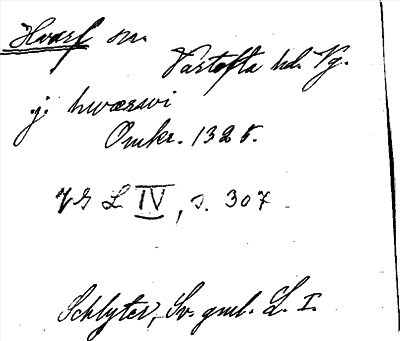 Hvarf sn.
Vartofta hd. Vg.
j hwærwi
Omkr. 1325.
VGL IV, s. 307
Schlyter, Sv. gml. L. I.